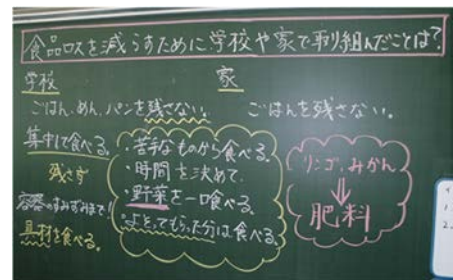 食品ロスを減らすために学校や家で取り組んだことは?
学校
家
ごはん、めん、パンを残さない。
ごはんを残さない。
集中して食べる。
残さず
容器のすみずみまで!
具材を食べる。
・苦手なものから食べる。
・時間を決めて、
・野菜を一口食べる。
・よそってもらった分は食べる。
リンゴ、みかん
⇓
肥料